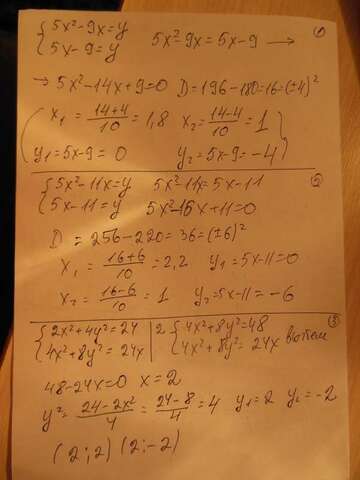 {5x²-9x=y    5x²-9x=5x-9 →    ①
{5x-9=y
→ 5x²-14x+9=0   D=196-180=16=(±4)²
x₁ = (14+4)/10 = 1,8   x₂ = (14-4)/10 = 1
y₁=5x-9=0   y₂=5x-9=-4
{5x²-11x=y   5x²-11x=5x-11   ②
{5x-11=y   5x²-16x+11=0
D = 256-220=36=(±6)²
x₁ = (16+6)/10 = 2,2   y₁=5x-11=0
x₂ = (16-6)/10 = 1   y₂=5x-11=-6
{2x²+4y²=24 | 2 {4x²+8y²=48   ③
{4x²+8y²=24x | {4x²+8y²=24x вычтем
48-24x=0   x=2
y² = (24-2x²)/4 = (24-8)/4 = 4   y₁=2   y₂=-2
(2;2) (2;-2)